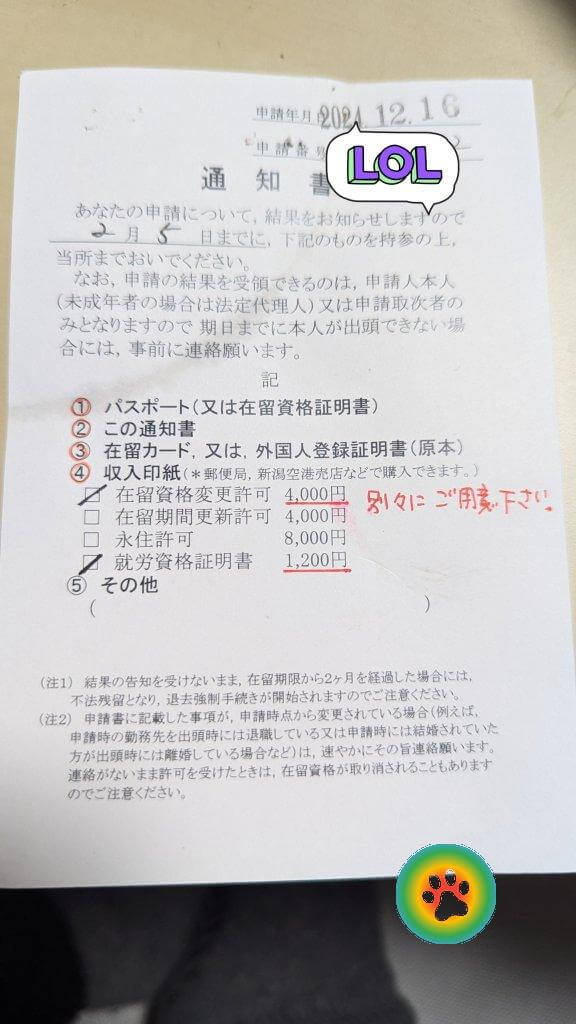 申請年月日 2024.12.16
申請番号 2
LOL
通知書
あなたの申請について, 結果をお知らせしますので
2 月 5 日までに, 下記のものを持参の上,
当所までおいでください。
なお, 申請の結果を受領できるのは, 申請人本人
(未成年者の場合は法定代理人)又は申請取次者の
みとなりますので 期日までに本人が出頭できない場
合には, 事前に連絡願います。
記
① パスポート(又は在留資格証明書)
② この通知書
③ 在留カード, 又は, 外国人登録証明書(原本)
④ 収入印紙(*郵便局, 新潟空港売店などで購入できます。)
☑ 在留資格変更許可 4,000円 別々に ご用意下さい。
□ 在留期間更新許可 4,000円
□ 永住許可 8,000円
☑ 就労資格証明書 1,200円
⑤ その他
( )
(注1) 結果の告知を受けないまま, 在留期限から2ヶ月を経過した場合には,
不法残留となり, 退去強制手続きが開始されますのでご注意ください。
(注2) 申請書に記載した事項が, 申請時点から変更されている場合(例えば,
申請時の勤務先を出頭時には退職している又は申請時には結婚されていた
方が出頭時には離婚している場合など)は, 速やかにその旨連絡願います。
連絡がないまま許可を受けたときは, 在留資格が取り消されることもあります
のでご注意ください。